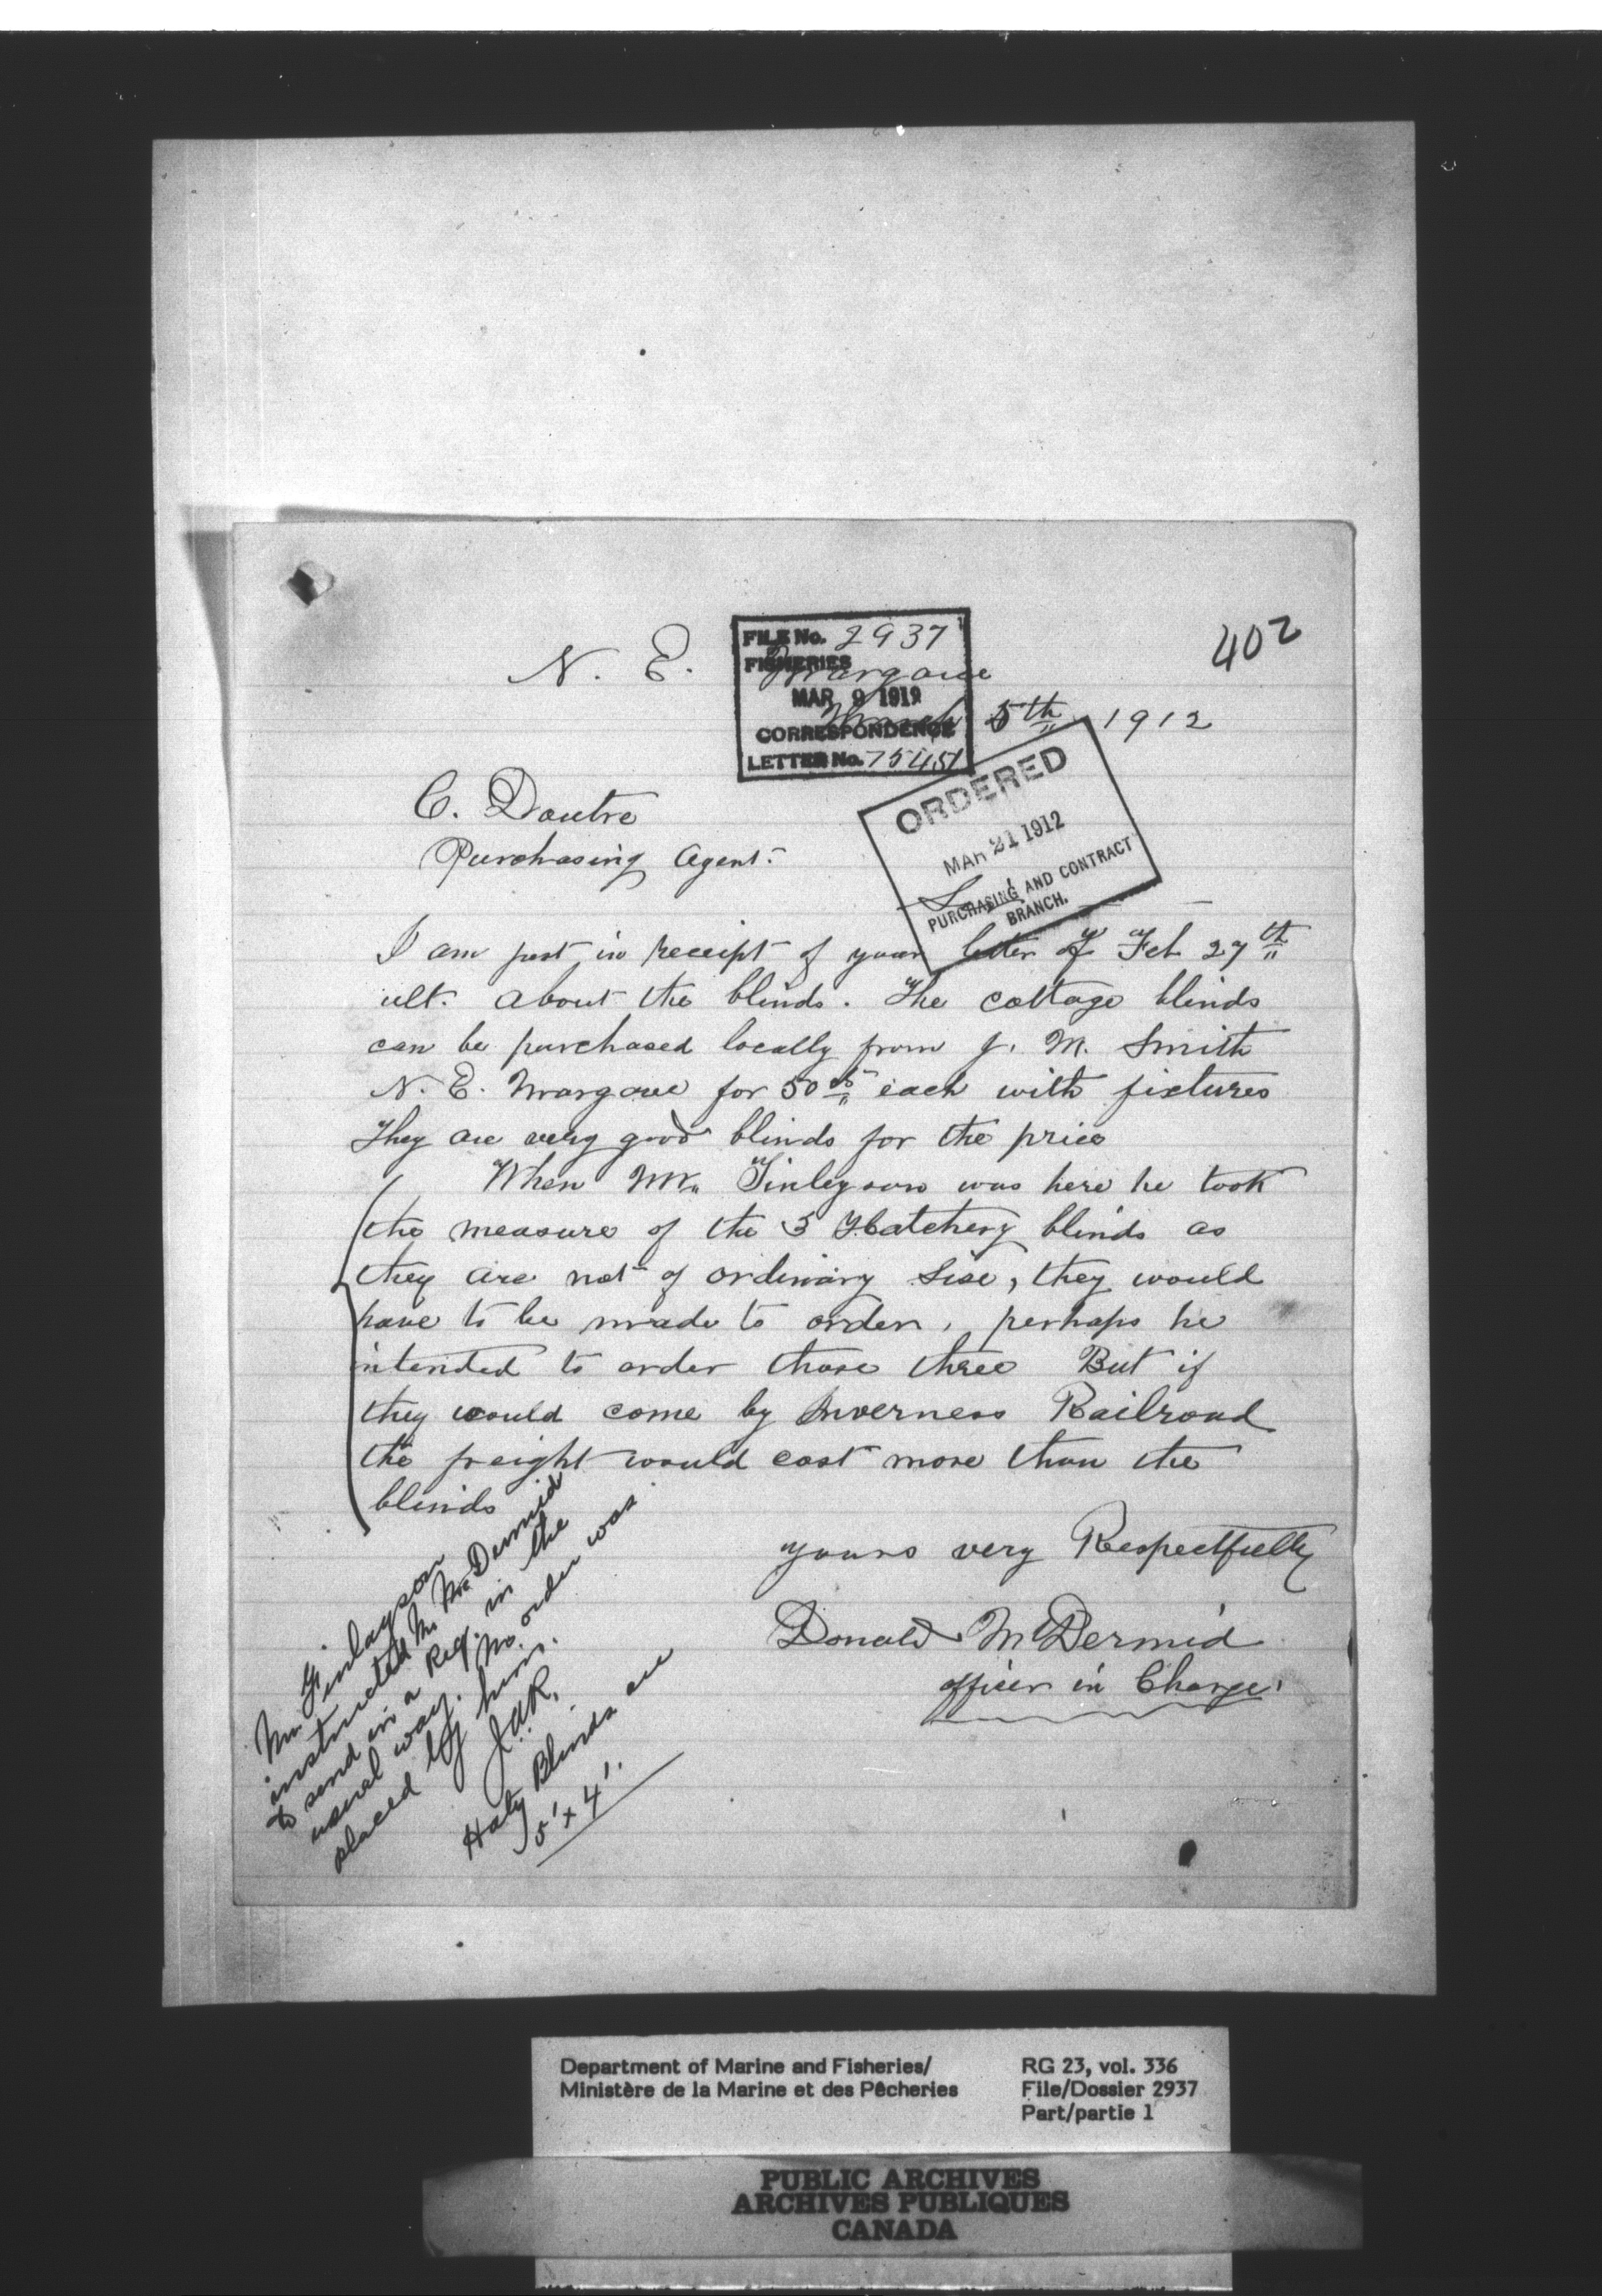 402
N. E. Margaree
March 5th 1912
FILE No. 2937
FISHERIES
MAR 9 1912
CORRESPONDENCE
LETTER No. 75451
ORDERED
MAR 21 1912
PURCHASING AND CONTRACT
BRANCH.
C. Doutre
Purchasing Agent.
I am just in receipt of your letter of Feb 27th
ult. about the blinds. The cottage blinds
can be purchased locally from J. M. Smith
N. E. Margaree for 50cts each with fixtures
They are very good blinds for the price
When Mr. Finleyson was here he took
the measure of the 3 Hatchery blinds as
they are not of ordinary sise, they would
have to be made to order, perhaps he
intended to order those three But if
they would come by Inverness Railroad
the freight would cost more than the
blinds
yours very Respectfully
Donald McDermid
officer in Charge.
Mr. Finlayson
instructed Mr. McDermid
to send in a Req. in the
usual way. No order was
placed by him.
J.A.R.
Haty Blinds are
5' x 4'.
Department of Marine and Fisheries/
Ministère de la Marine et des Pêcheries
RG 23, vol. 336
File/Dossier 2937
Part/partie 1
PUBLIC ARCHIVES
ARCHIVES PUBLIQUES
CANADA